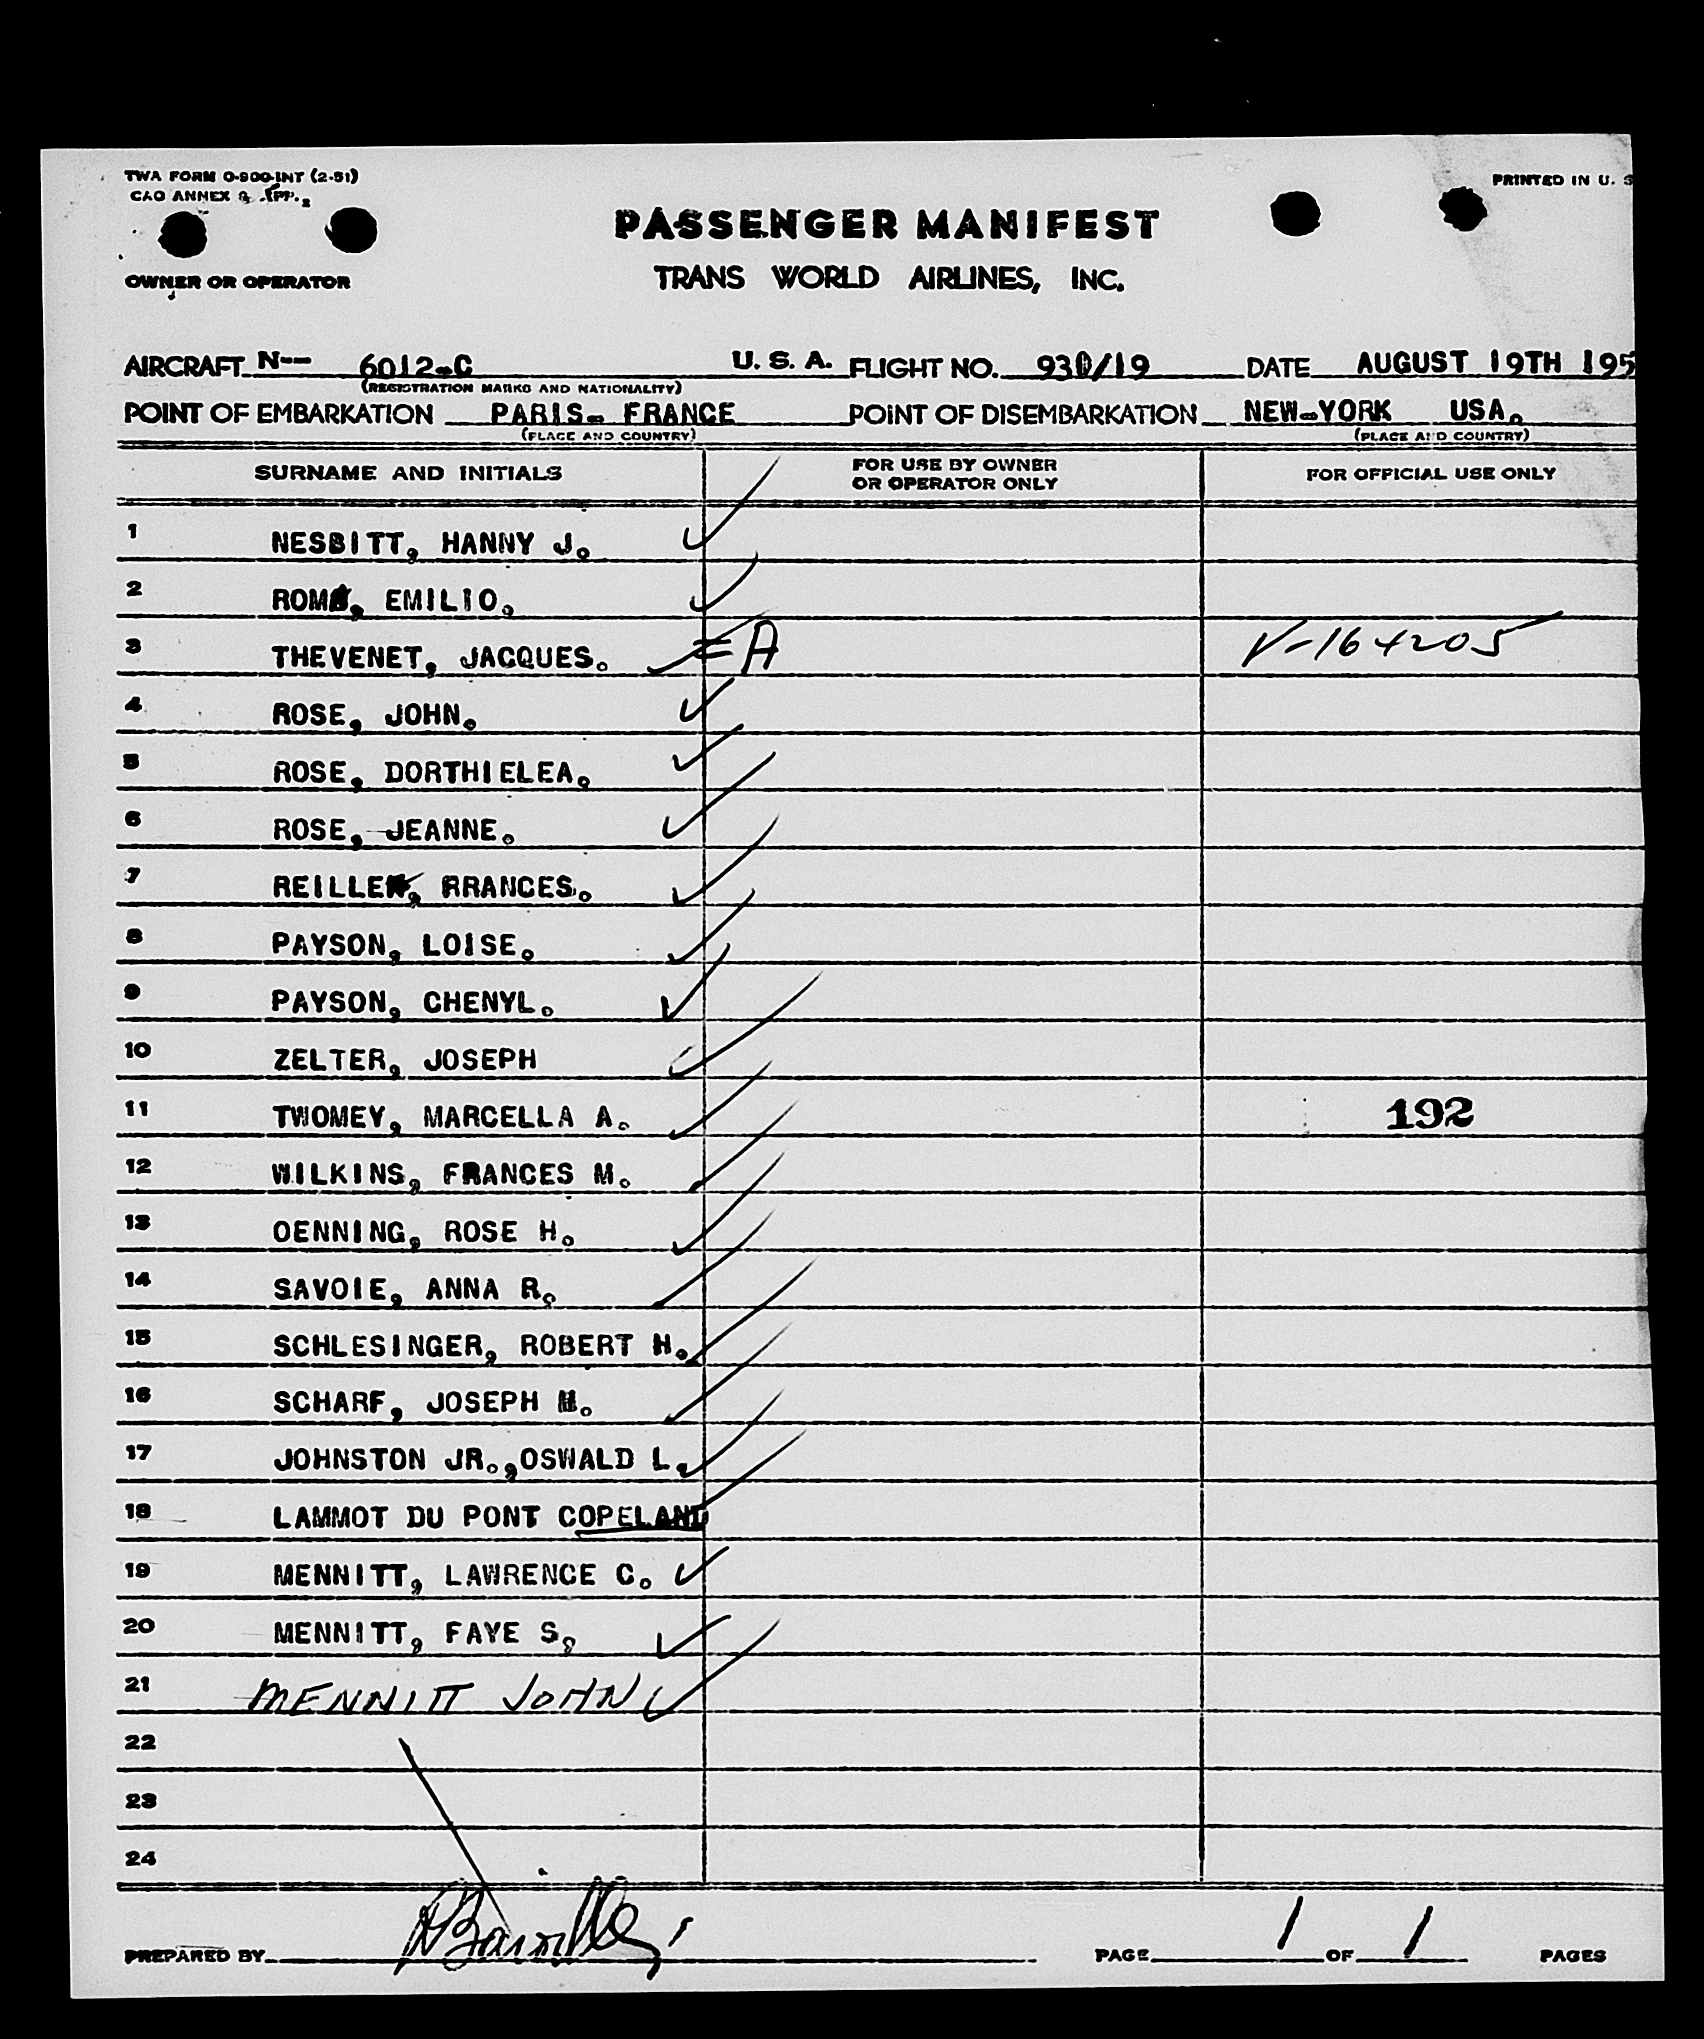 TWA FORM O-900-INT (2-51)
PRINTED IN U. S
CAO ANNEX 9 APP. 2
PASSENGER MANIFEST
OWNER OR OPERATOR
TRANS WORLD AIRLINES, INC.
AIRCRAFT N-- 6012-C U. S. A. FLIGHT NO. 930/19 DATE AUGUST 19TH 195
(REGISTRATION MARKS AND NATIONALITY)
POINT OF EMBARKATION PARIS- FRANCE POINT OF DISEMBARKATION NEW-YORK USA.
(PLACE AND COUNTRY) (PLACE AND COUNTRY)
SURNAME AND INITIALS FOR USE BY OWNER OR OPERATOR ONLY FOR OFFICIAL USE ONLY
1 NESBITT, HANNY J.
2 EMILIO.
3 THEVENET, JACQUES. = A V-164205
4 ROSE, JOHN.
5 ROSE, DORTHIELEA.
6 ROSE, JEANNE.
7 RRANCES.
8 PAYSON, LOISE.
9 PAYSON, CHENYL.
10 ZELTER, JOSEPH
11 TWOMEY, MARCELLA A. 192
12 WILKINS, FRANCES M.
13 OENNING, ROSE H.
14 SAVOIE, ANNA R.
15 SCHLESINGER, ROBERT H.
16 SCHARF, JOSEPH M.
17 JOHNSTON JR.,OSWALD L.
18 LAMMOT DU PONT COPELAND
19 MENNITT, LAWRENCE C.
20 MENNITT, FAYE S,
21 MENNITT JOHN
22
23
24
PREPARED BY PAGE 1 OF 1 PAGES